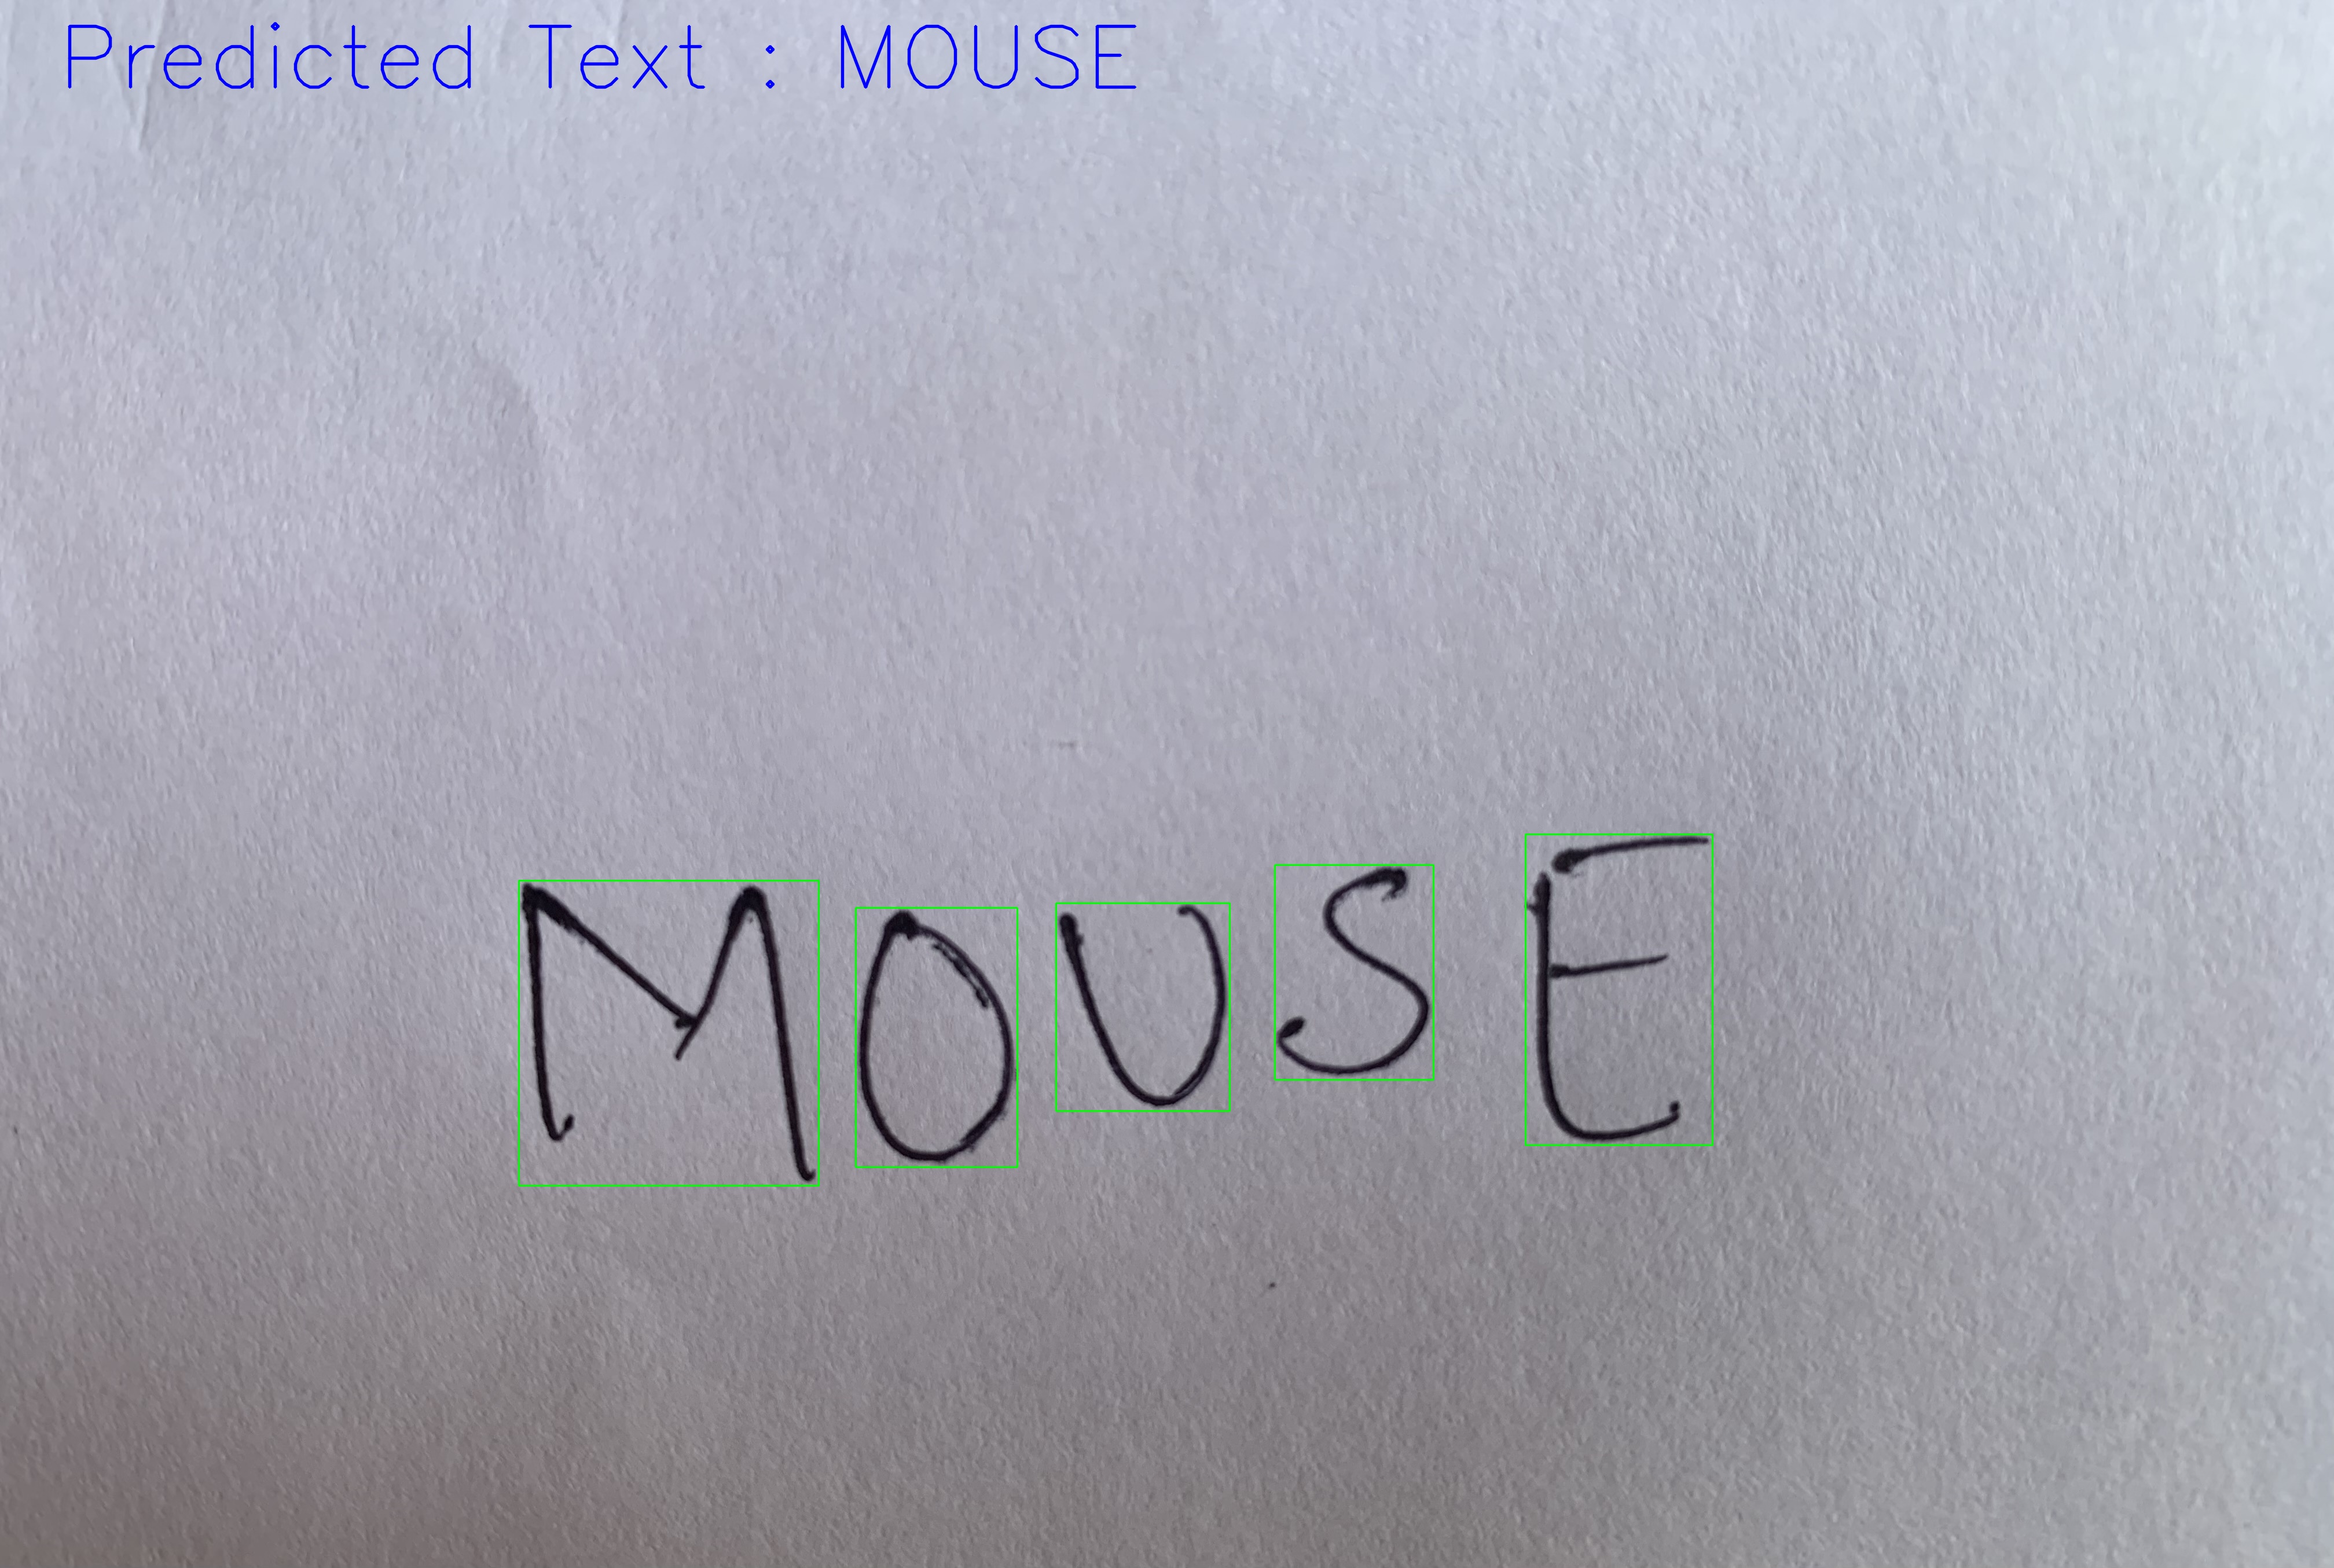 Predicted Text : MOUSE
MOUSE